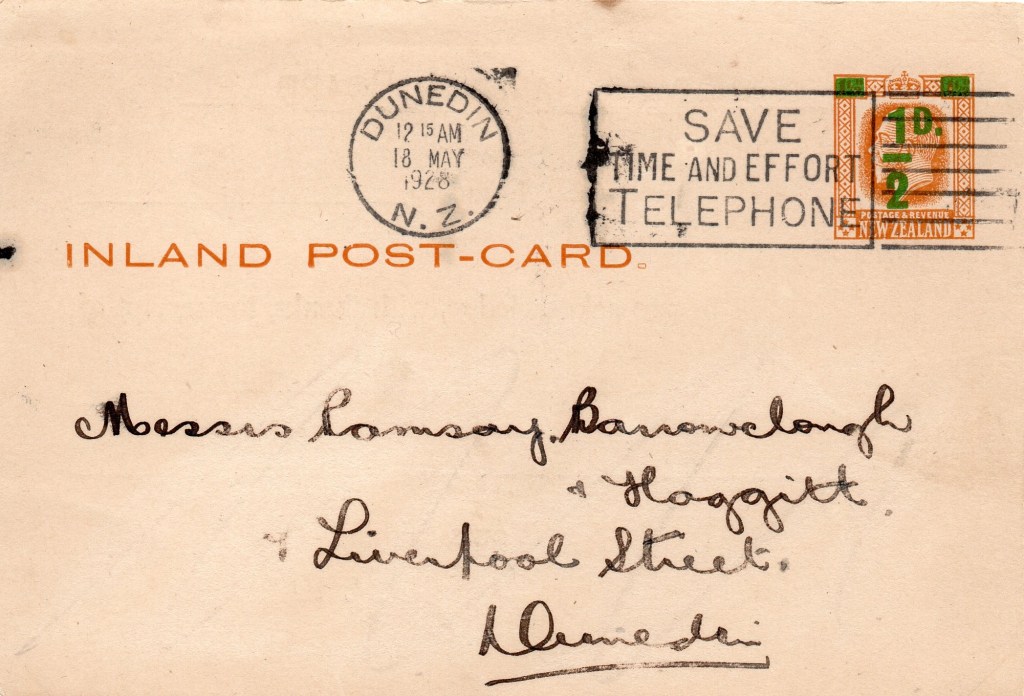 DUNEDIN
12 15 AM
18 MAY
1928
N. Z.
SAVE
TIME AND EFFORT
TELEPHONE
½D.
POSTAGE & REVENUE
NEW ZEALAND
INLAND POST-CARD.
Messrs Ramsay, Barrowclough
& Haggitt
Liverpool Street.
Dunedin